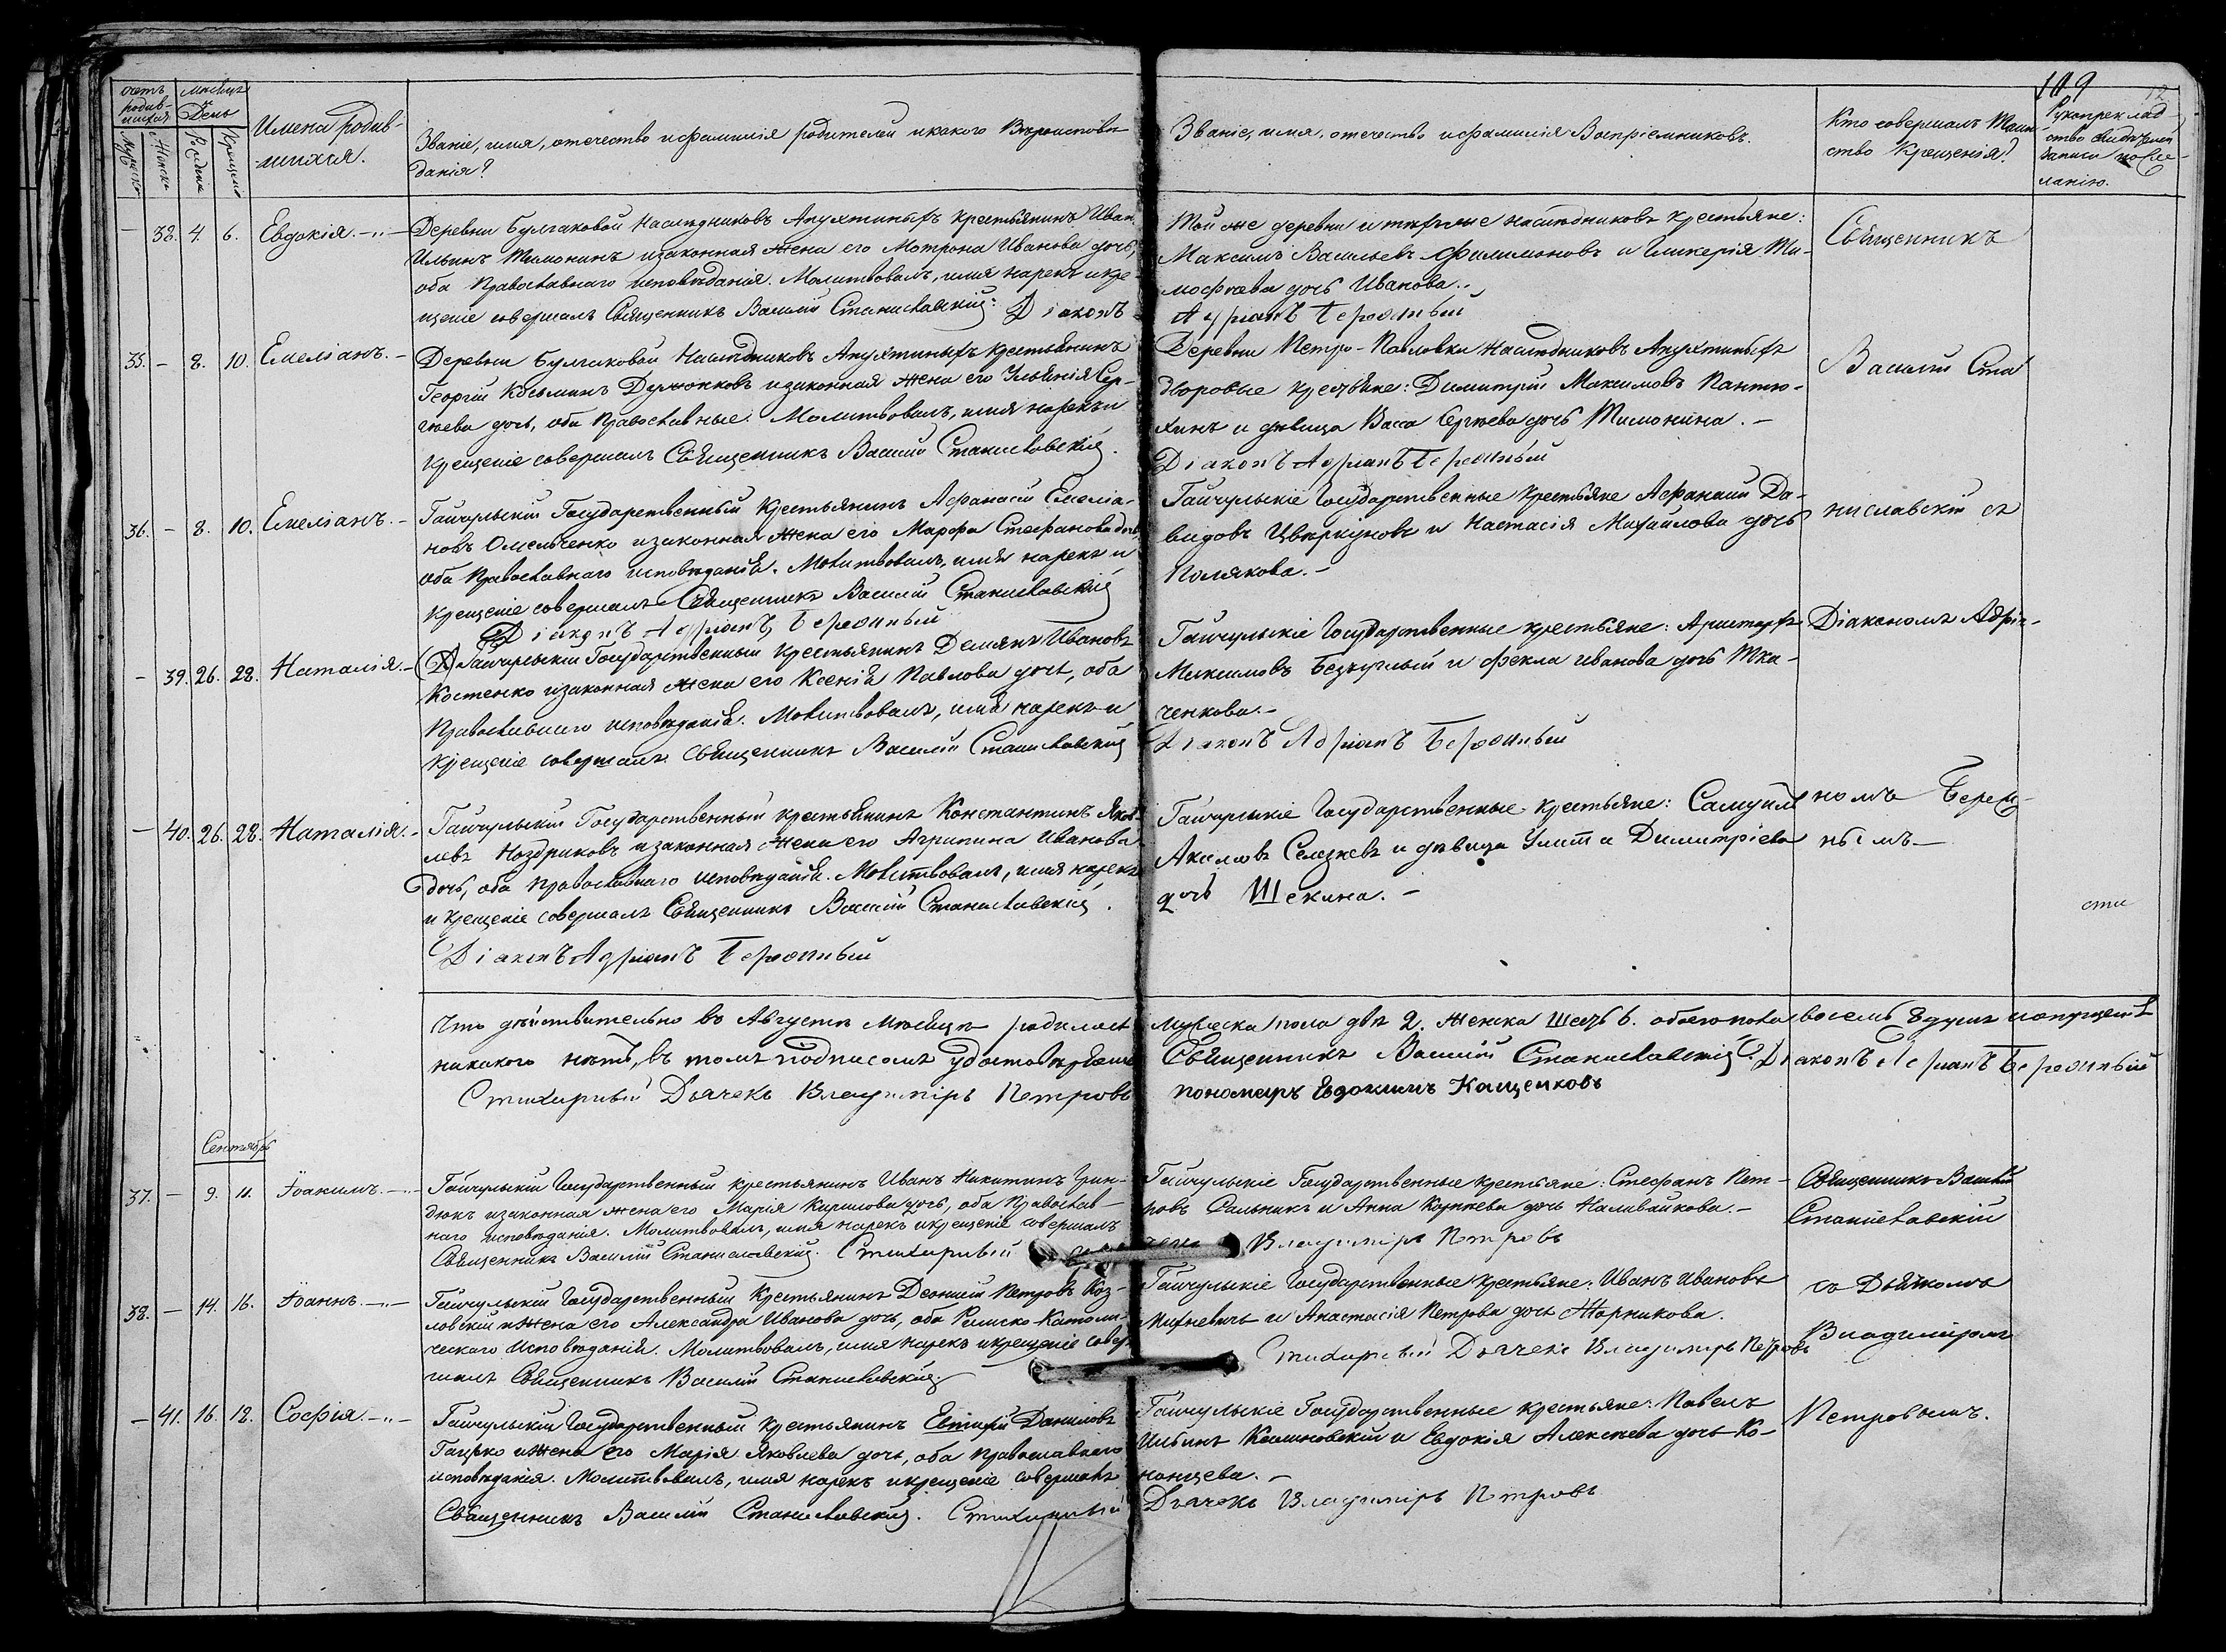 109
12
Счетъ родив-
шихся
Мѣсяцъ
и
День
Мужеска
Женска
Рожденія
Крещенія
Имена родив-
шихся.
Званіе, имя, отечество и фамилія родителей и какого Вѣроисповѣ-
данія?
Званіе, имя, отечество и фамилія Воспріемниковъ.
Кто совершалъ Таин-
ство Крещенія?
Рукоприклад-
ство свидѣтелей
записи по же-
ланію.
— 38. 4. 6. Евдокія.
Деревни Булгаковой Наслѣдниковъ Апухтиныхъ крестьянинъ Иван
Ильинъ Тимонинъ и законная жена его Мотрона Иванова дочь,
оба Православнаго исповѣданія. Молитвовалъ, имя нарекъ и кре-
щеніе совершалъ Священникъ Василій Станиславскій. Діаконъ
Той же деревни и тѣхъ же наслѣдниковъ крестьяне:
Максимъ Васильевъ Филимоновъ и Гликерія Ти-
мофѣева дочь Иванова.
Адріанъ Бересный
Священникъ
35. — 8. 10. Емеліанъ.
Деревни Булгаковой Наслѣдниковъ Апухтиныхъ крестьянинъ
Георгій Косминъ и законная жена его Ульянія Сер-
гѣева дочь, оба Православные. Молитвовалъ, имя нарекъ и
крещеніе совершалъ Священникъ Василій Станиславскій.
Деревни Петро-Павловки Наслѣдниковъ Апухтиныхъ
дворовые крестьяне: Димитрій Максимовъ Пантю-
хинъ и дѣвица Васса Сергѣева дочь Тимонина.
Діаконъ Адріанъ Бересный
Василій Ста
36. — 8. 10. Емеліанъ.
Гайчульскій Государственный Крестьянинъ Афанасій Емеліа-
новъ Омельченко и законная жена его Марфа Стефанова дочь
оба Православнаго исповѣданія. Молитвовалъ, имя нарекъ и
крещеніе совершалъ Священникъ Василій Станиславскій
Діаконъ Адріанъ Бересный
Гайчульскіе Государственные Крестьяне Афанасій Да-
видовъ Цвиркуновъ и Настасія Михайлова дочь
Полякова.
ниславскій съ
— 39. 26. 28. Наталія.
Гайчульскій Государственный крестьянинъ Демянъ Ивановъ
Костенко и законная жена его Ксенія Павлова дочь, оба
Православнаго исповѣданія. Молитвовалъ, имя нарекъ и
крещеніе совершалъ Священникъ Василій Станиславскій
Гайчульскіе Государственные крестьяне: Аристархъ
Максимовъ Безкуглый и Фекла Иванова дочь Тка-
ченкова.
Діаконъ Адріанъ Бересный
Діакономъ Адріа-
— 40. 26. 28. Наталія.
Гайчульскій Государственный крестьянинъ Константинъ Яков-
левъ Ноздриковъ и законная жена его Агрипина Иванова
дочь, оба православнаго исповѣданія. Молитвовалъ, имя нарекъ
и крещеніе совершалъ Священникъ Василій Станиславскій.
Діаконъ Адріанъ Бересный
Гайчульскіе Государственные крестьяне: Самуилъ
Акимовъ Селезневъ и дѣвица Улита Димитріева
дочь Шекина.
номъ Берес-
нымъ
сти
Что дѣйствительно въ Августѣ Мѣсяцѣ родилось
мужеска пола два 2. женска шесть 6. обоего пола восемь 8 душъ и опущенія
никакого нѣтъ, въ томъ подписомъ удостовѣряемъ
Священникъ Василій Станиславскій Діаконъ Адріанъ Бересный
Стихарный Дьячекъ Владимиръ Петровъ
пономаръ Евдокимъ Кащенковъ
Сентябрь
37. — 9. 11. Іоакимъ.
Гайчульскій Государственный крестьянинъ Иванъ Никитинъ Грин-
дюкъ и законная жена его Марія Кирилова дочь, оба Православ-
наго исповѣданія. Молитвовалъ, имя нарекъ и крещеніе совершалъ
Священникъ Василій Станиславскій. Стихарный
Гайчульскіе Государственные крестьяне: Стефанъ Пет-
ровъ Сальникъ и Анна Корнѣева дочь Наливайкова.
Владимиръ Петровъ
Священникъ Василій
Станиславскій
38. — 14. 16. Іоаннъ.
Гайчульскій Государственный Крестьянинъ Деонисій Петровъ Коз-
ловскій и жена его Александра Иванова дочь, оба Римско-Католи-
ческаго Исповѣданія. Молитвовалъ, имя нарекъ и крещеніе совер-
шалъ Священникъ Василій Станиславскій.
Гайчульскіе Государственные крестьяне: Иванъ Ивановъ
Михневичъ и Анастасія Петрова дочь Жорникова.
Стихарный Дьячекъ Владимиръ Петровъ
со Дьячкомъ
Владимиромъ
— 41. 16. 18. Софія.
Гайчульскій Государственный крестьянинъ Евтихій Даниловъ
Гацько и жена его Марія Яковлева дочь, оба Православнаго
исповѣданія. Молитвовалъ, имя нарекъ и крещеніе совершалъ
Священникъ Василій Станиславскій. Стихарный
Гайчульскіе Государственные крестьяне: Павелъ
Ильинъ Калиновскій и Евдокія Алексѣева дочь Ко-
нонцева.
Дьячекъ Владимиръ Петровъ
Петровымъ.